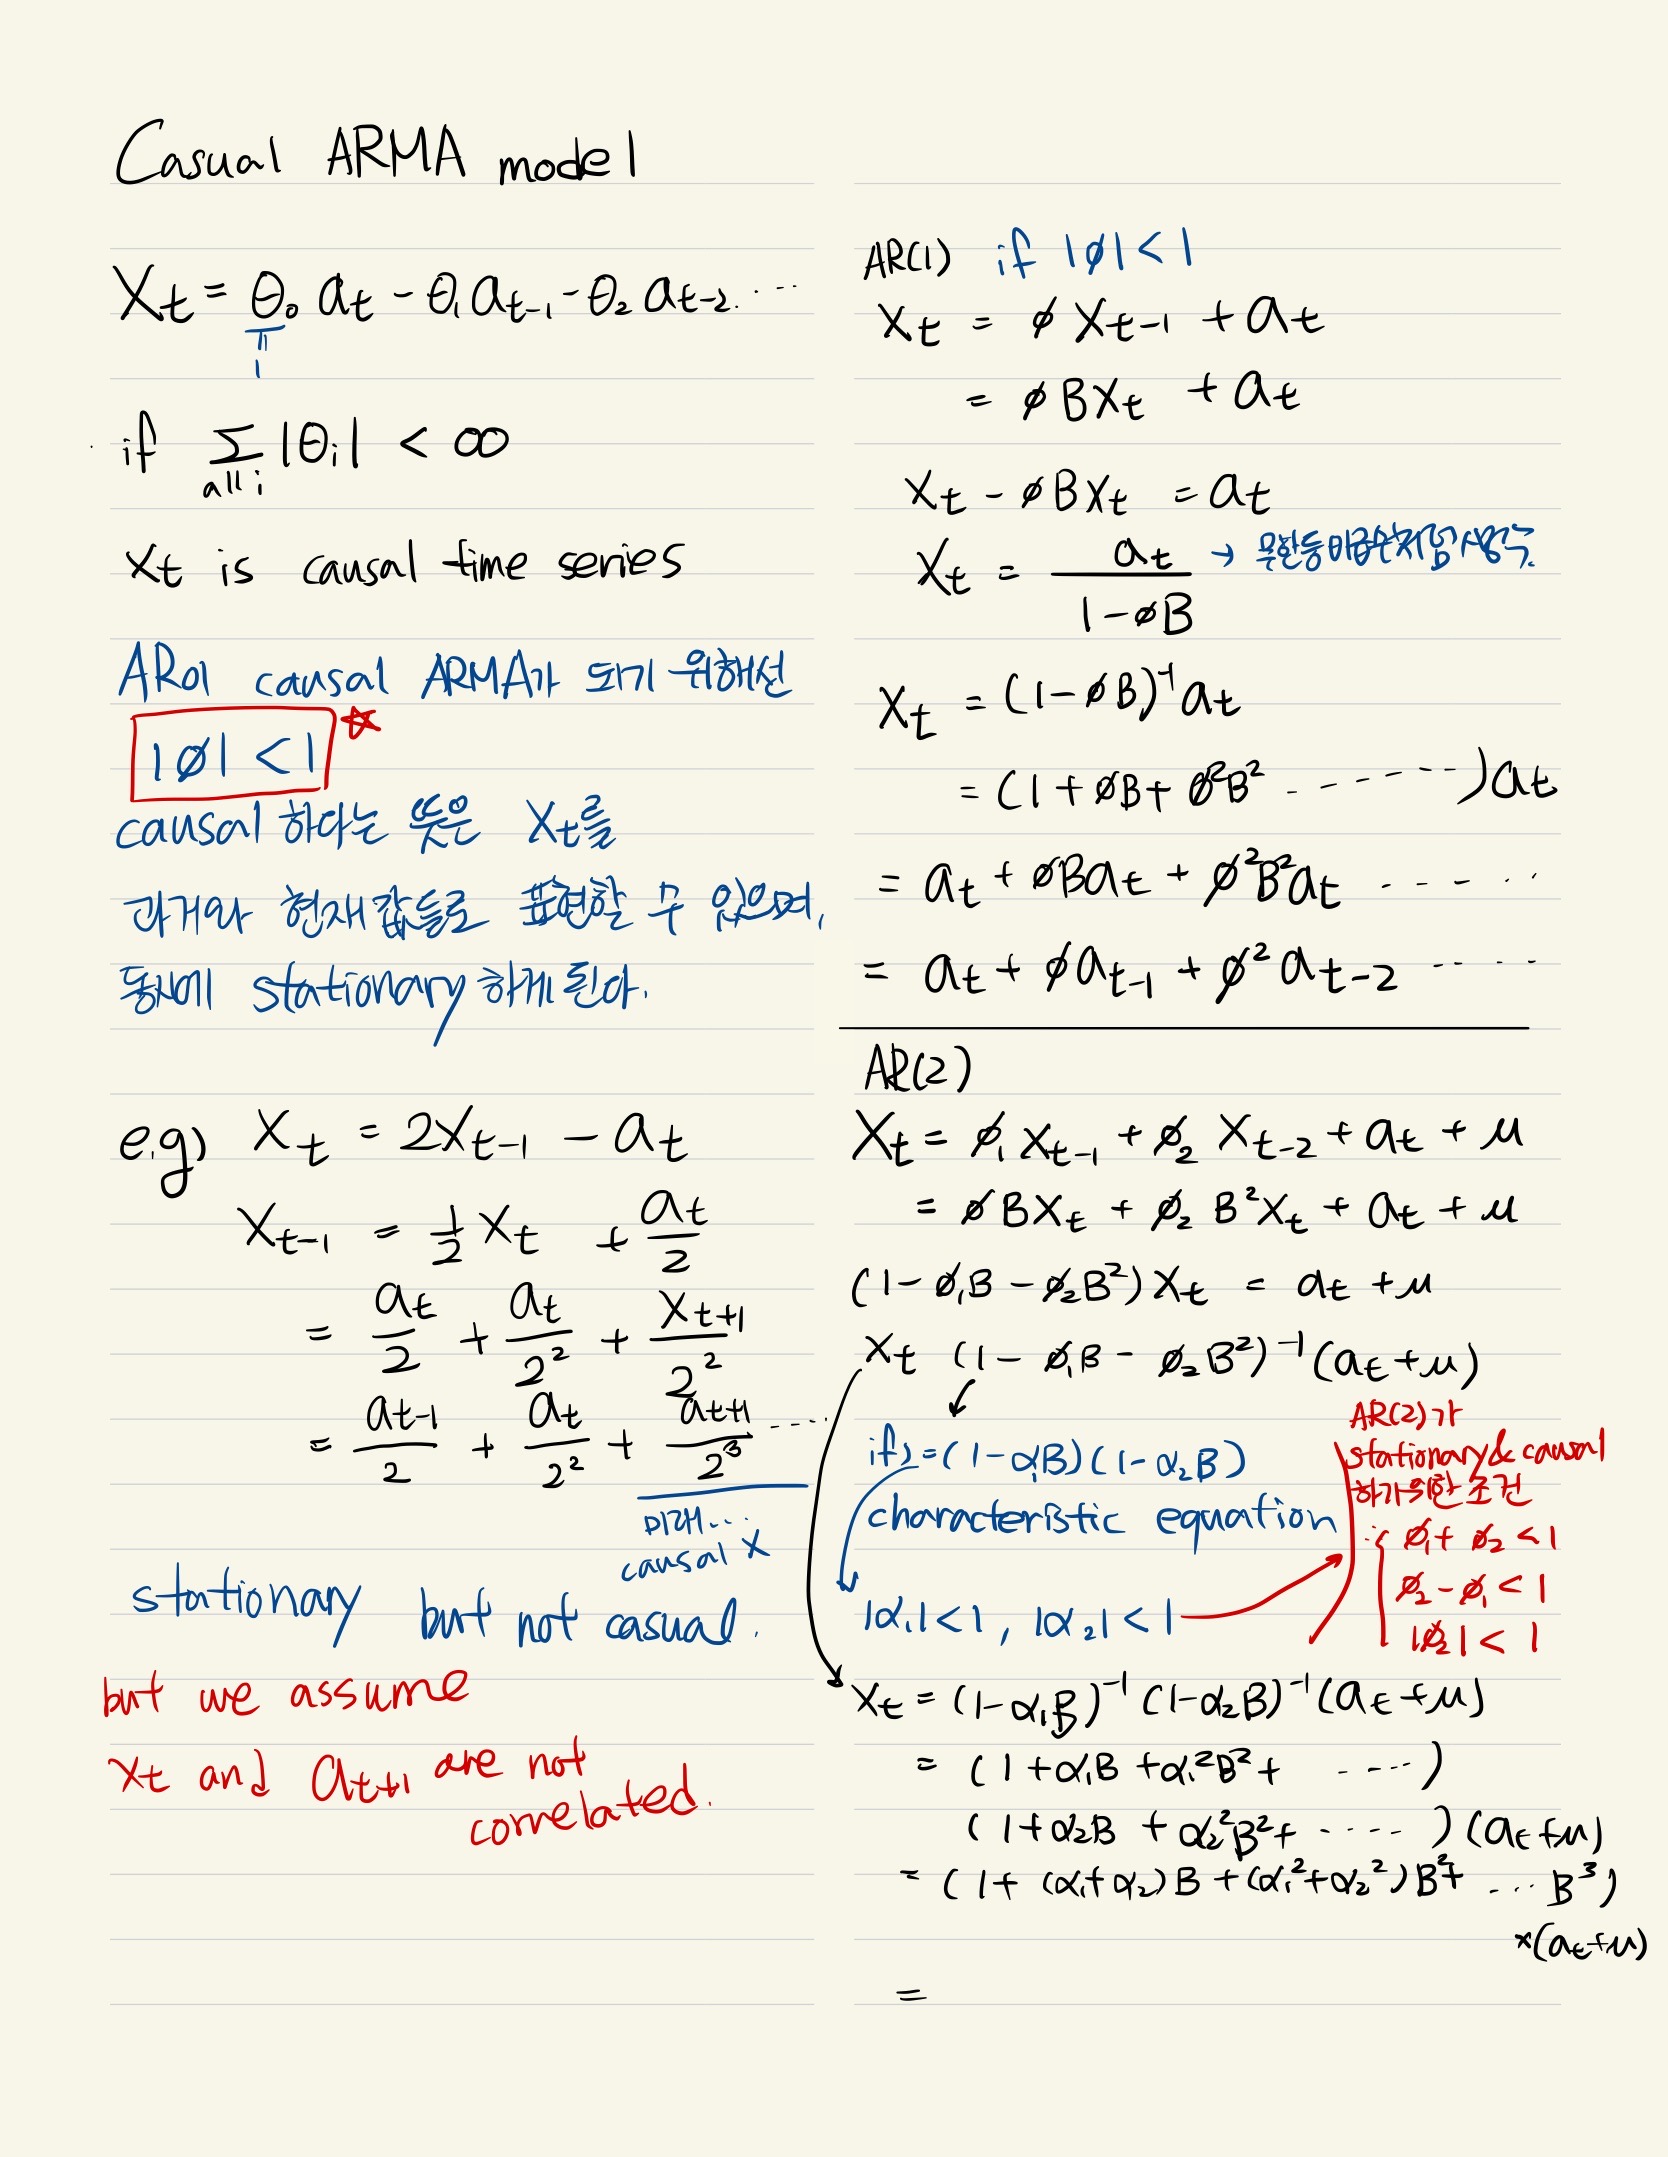 Casual ARMA model
Xt = θ₀ at - θ₁ at-1 - θ₂ at-2 ....
1
if Σ |θi| < ∞
all i
Xt is causal time series
AR이 causal ARMA가 되기 위해선
|ø| < 1 ☆
causal 하다는 뜻은 Xt를
과거와 현재 값들로 표현할 수 있으며,
동시에 stationary 하게 된다.
e.g) Xt = 2Xt-1 - at
Xt-1 = 1/2 Xt + at/2
= at/2 + at/2² + Xt+1/2²
= at-1/2 + at/2² + at+1/2³ ....
미래...
causal X
stationary but not casual.
but we assume
Xt and at+1 are not
correlated.
AR(1) if |ø| < 1
Xt = ø Xt-1 + at
= ø B Xt + at
Xt - ø B Xt = at
Xt = at / (1 - øB) → 무한등비급수처럼 생각.
Xt = (1 - øB)⁻¹ at
= (1 + øB + ø²B² ......) at
= at + øBat + ø²B²at .....
= at + øat-1 + ø² at-2 ....
AR(2)
Xt = ø₁ Xt-1 + ø₂ Xt-2 + at + μ
= øBXt + ø₂ B²Xt + at + μ
(1 - ø₁B - ø₂B²) Xt = at + μ
Xt (1 - ø₁B - ø₂B²)⁻¹ (at + μ)
if) = (1 - α₁B)(1 - α₂B)
characteristic equation
|α₁| < 1, |α₂| < 1
AR(2)가
stationary & causal
하기 위한 조건
ø₁ + ø₂ < 1
ø₂ - ø₁ < 1
|ø₂| < 1
Xt = (1 - α₁B)⁻¹ (1 - α₂B)⁻¹ (at + μ)
= (1 + α₁B + α₁²B² + ....)
(1 + α₂B + α₂²B² + ....) (at + μ)
= (1 + (α₁ + α₂)B + (α₁² + α₂²)B² + ... B³)
×(at + μ)
=